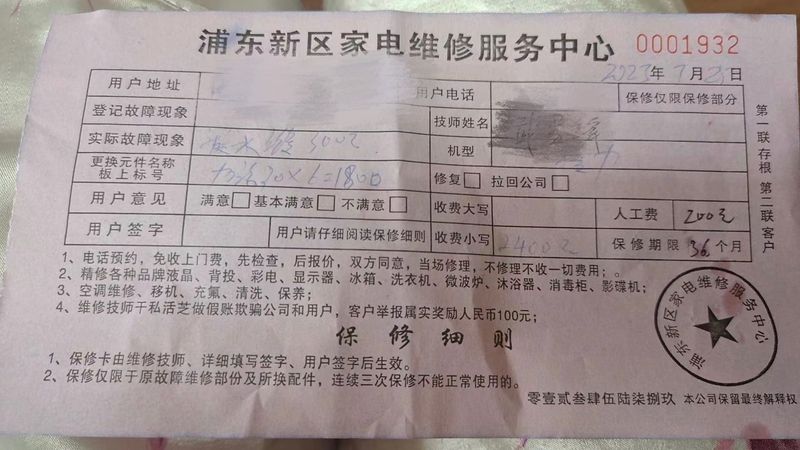 浦东新区家电维修服务中心 0001932
2023年7月25日
用户地址 用户电话 保修仅限保修部分
登记故障现象 技师姓名
实际故障现象 300元 机型
更换元件名称 板上标号 30×6=1800 修复□ 拉回公司□
用户意见 满意□ 基本满意□ 不满意□ 收费大写 人工费 200元
用户签字 用户请仔细阅读保修细则 收费小写 2400元 保修期限 36个月
第一联存根 第二联客户
1、电话预约，免收上门费，先检查，后报价，双方同意，当场修理，不修理不收一切费用；。
2、精修各种品牌液晶、背投、彩电、显示器、冰箱、洗衣机、微波炉、沐浴器、消毒柜、影碟机；
3、空调维修、移机、充氟、清洗、保养；
4、维修技师干私活芝做假账欺骗公司和用户，客户举报属实奖励人民币100元；
浦东新区家电维修服务中心
保修细则
1、保修卡由维修技师、详细填写签字、用户签字后生效。
2、保修仅限于原故障维修部份及所换配件，连续三次保修不能正常使用的。
零壹贰叁肆伍陆柒捌玖 本公司保留最终解释权